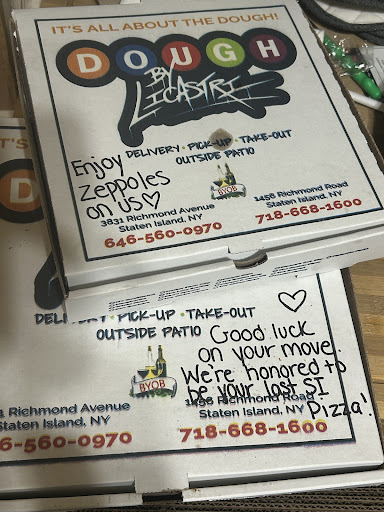 IT'S ALL ABOUT THE DOUGH!
DOUGH
BY
LICASTRI
DELIVERY • PICK-UP • TAKE-OUT
OUTSIDE PATIO
Enjoy
zeppoles
on us♡
BYOB
3831 Richmond Avenue
Staten Island, NY
646-560-0970
1456 Richmond Road
Staten Island, NY
718-668-1600
IT'S
D
DELIVERY • PICK-UP • TAKE-OUT
OUTSIDE PATIO
BYOB
Good luck
on your move.
We're honored to
be your last SI
Pizza!
1 Richmond Avenue
Staten Island, NY
6-560-0970
1456 Richmond Road
Staten Island, NY
718-668-1600